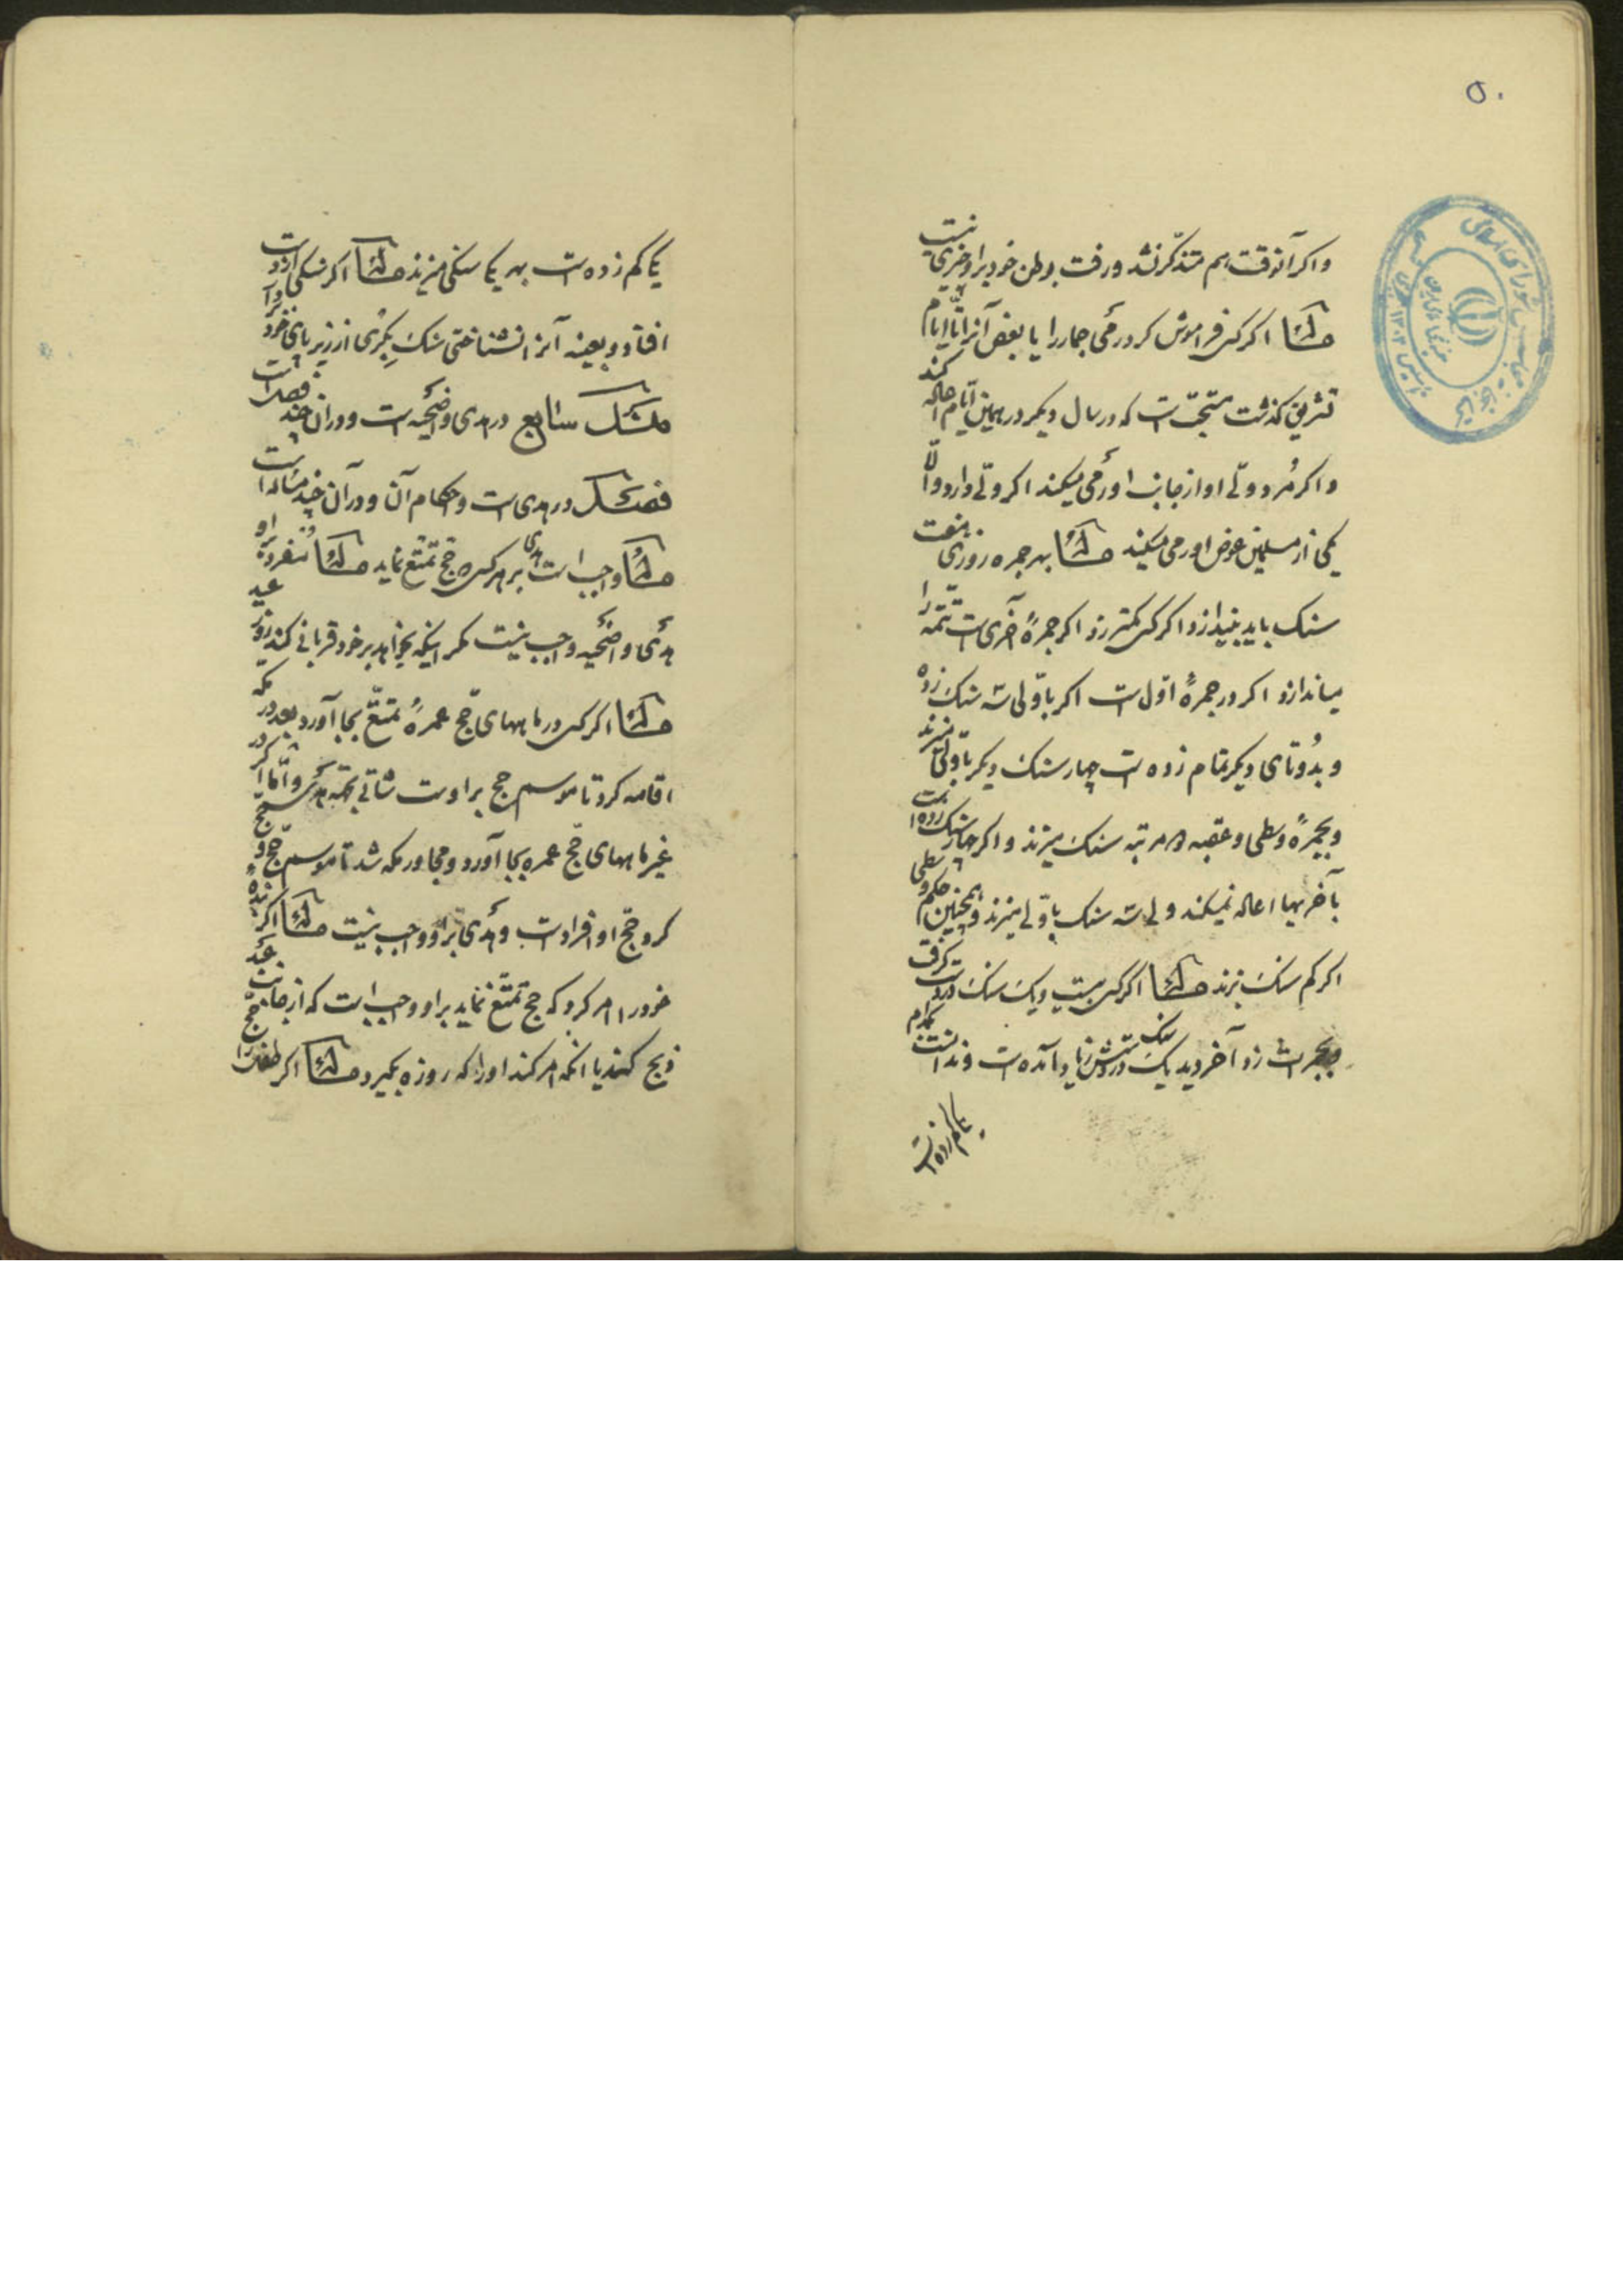 ۵۰
واکر آنوقت هم متذکّر نشد و رفت بوطن خود بر او چیزی نیست
مسئله اکر کسی فراموش کرد رمی جمار را یا بعض آنرا تا ایّام
تشریق کذشت مستحبّ است که در سال دیکر در همین ایّام اعاله کند
و اکر مُرد ولّی او از جانب او رمی میکند اکر ولّی دارد والّا
یکی از مسلمین عوض او رمی میکند مسئله بهر جمره روزی هفت
سنک باید بیندازد اکر کسی کمتر زد اکر جمرهٔ آخری است تتمّه را
میاندازد اکر در جمرهٔ اوّل است اکر باوّلی سه سنک زده
و بدُوتای دیکر تمام زده است چهار سنک دیکر باوّلی میزند
و بجمرهٔ وسطی و عقبه هر مرتبه سنک میزند و اکر چهار سنک زده است
بآخریها اعاله نمیکند ولی سه سنک باوّلی میزند و همچنین حکم وسطی
اکر کم سنک بزند مسئله اکر کسی بیست و یک سنک در دست کرفت
و بجمرات زد آخر دید یک سنک در دستش زیاد آمده است و ندانست بکدام
یک کم زده است
یکی کم زده است بهر یک سنکی میزند مسئله اکر سنکی از دست
افتاد و بعینه آنرا نشناختی سنک بکری از زیر پای خود بردار
منسک سابع در هدی و اضحیّه است و در ان چند فصل است
فصل در هدی است و احکام آن و در آن چند مسئاله است
مسئله واجب است هدی بر هر کس که حجّ تمتّع نماید مسئله مُفرد بر او
هدی و اضحیّه واجب نیست مکر اینکه بخواهد بر خود قربانی کند روز عید
مسئله اکر کسی در ماههای حجّ عمرهٔ تمتّع بجا آورد و بعد در مکّه
اقامه کرد تا موسم حجّ بر اوست شاتی بجهة هدی و امّا اکر در
غیر ماههای حجّ عمره بجا آورد و مجاور مکّه شد تا موسم حجّ و حجّ
کرد حجّ او افراد است و هدی بر او واجب نیست مسئله اکر بندهٔ
خود را امر کرد که حجّ تمتّع نماید بر او واجب است که از جانب عبد
ذبح کند یا انکه امر کند او را که روزه بکیرد مسئله اکر طفل را حجّ